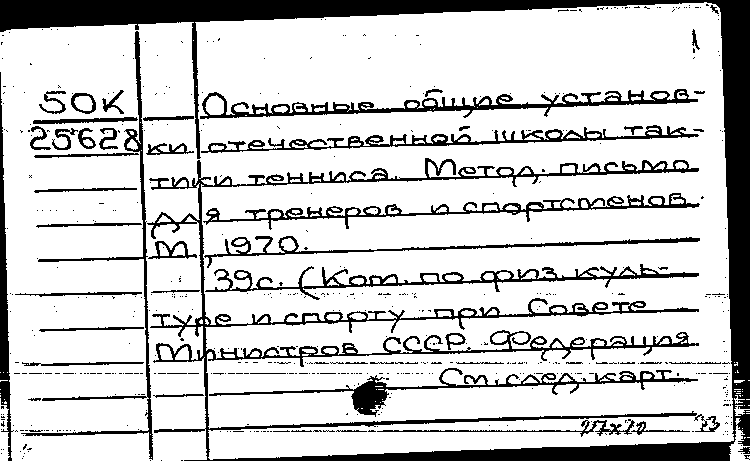 1
50К Основные общие установ-
25628 ки отечественной школы так-
тики тенниса. Метод. письмо
для тренеров и спортсменов.
М., 1970.
39с. (Ком. по физ. куль-
туре и спорту при Совете
Министров СССР. Федерация
См. след. карт.